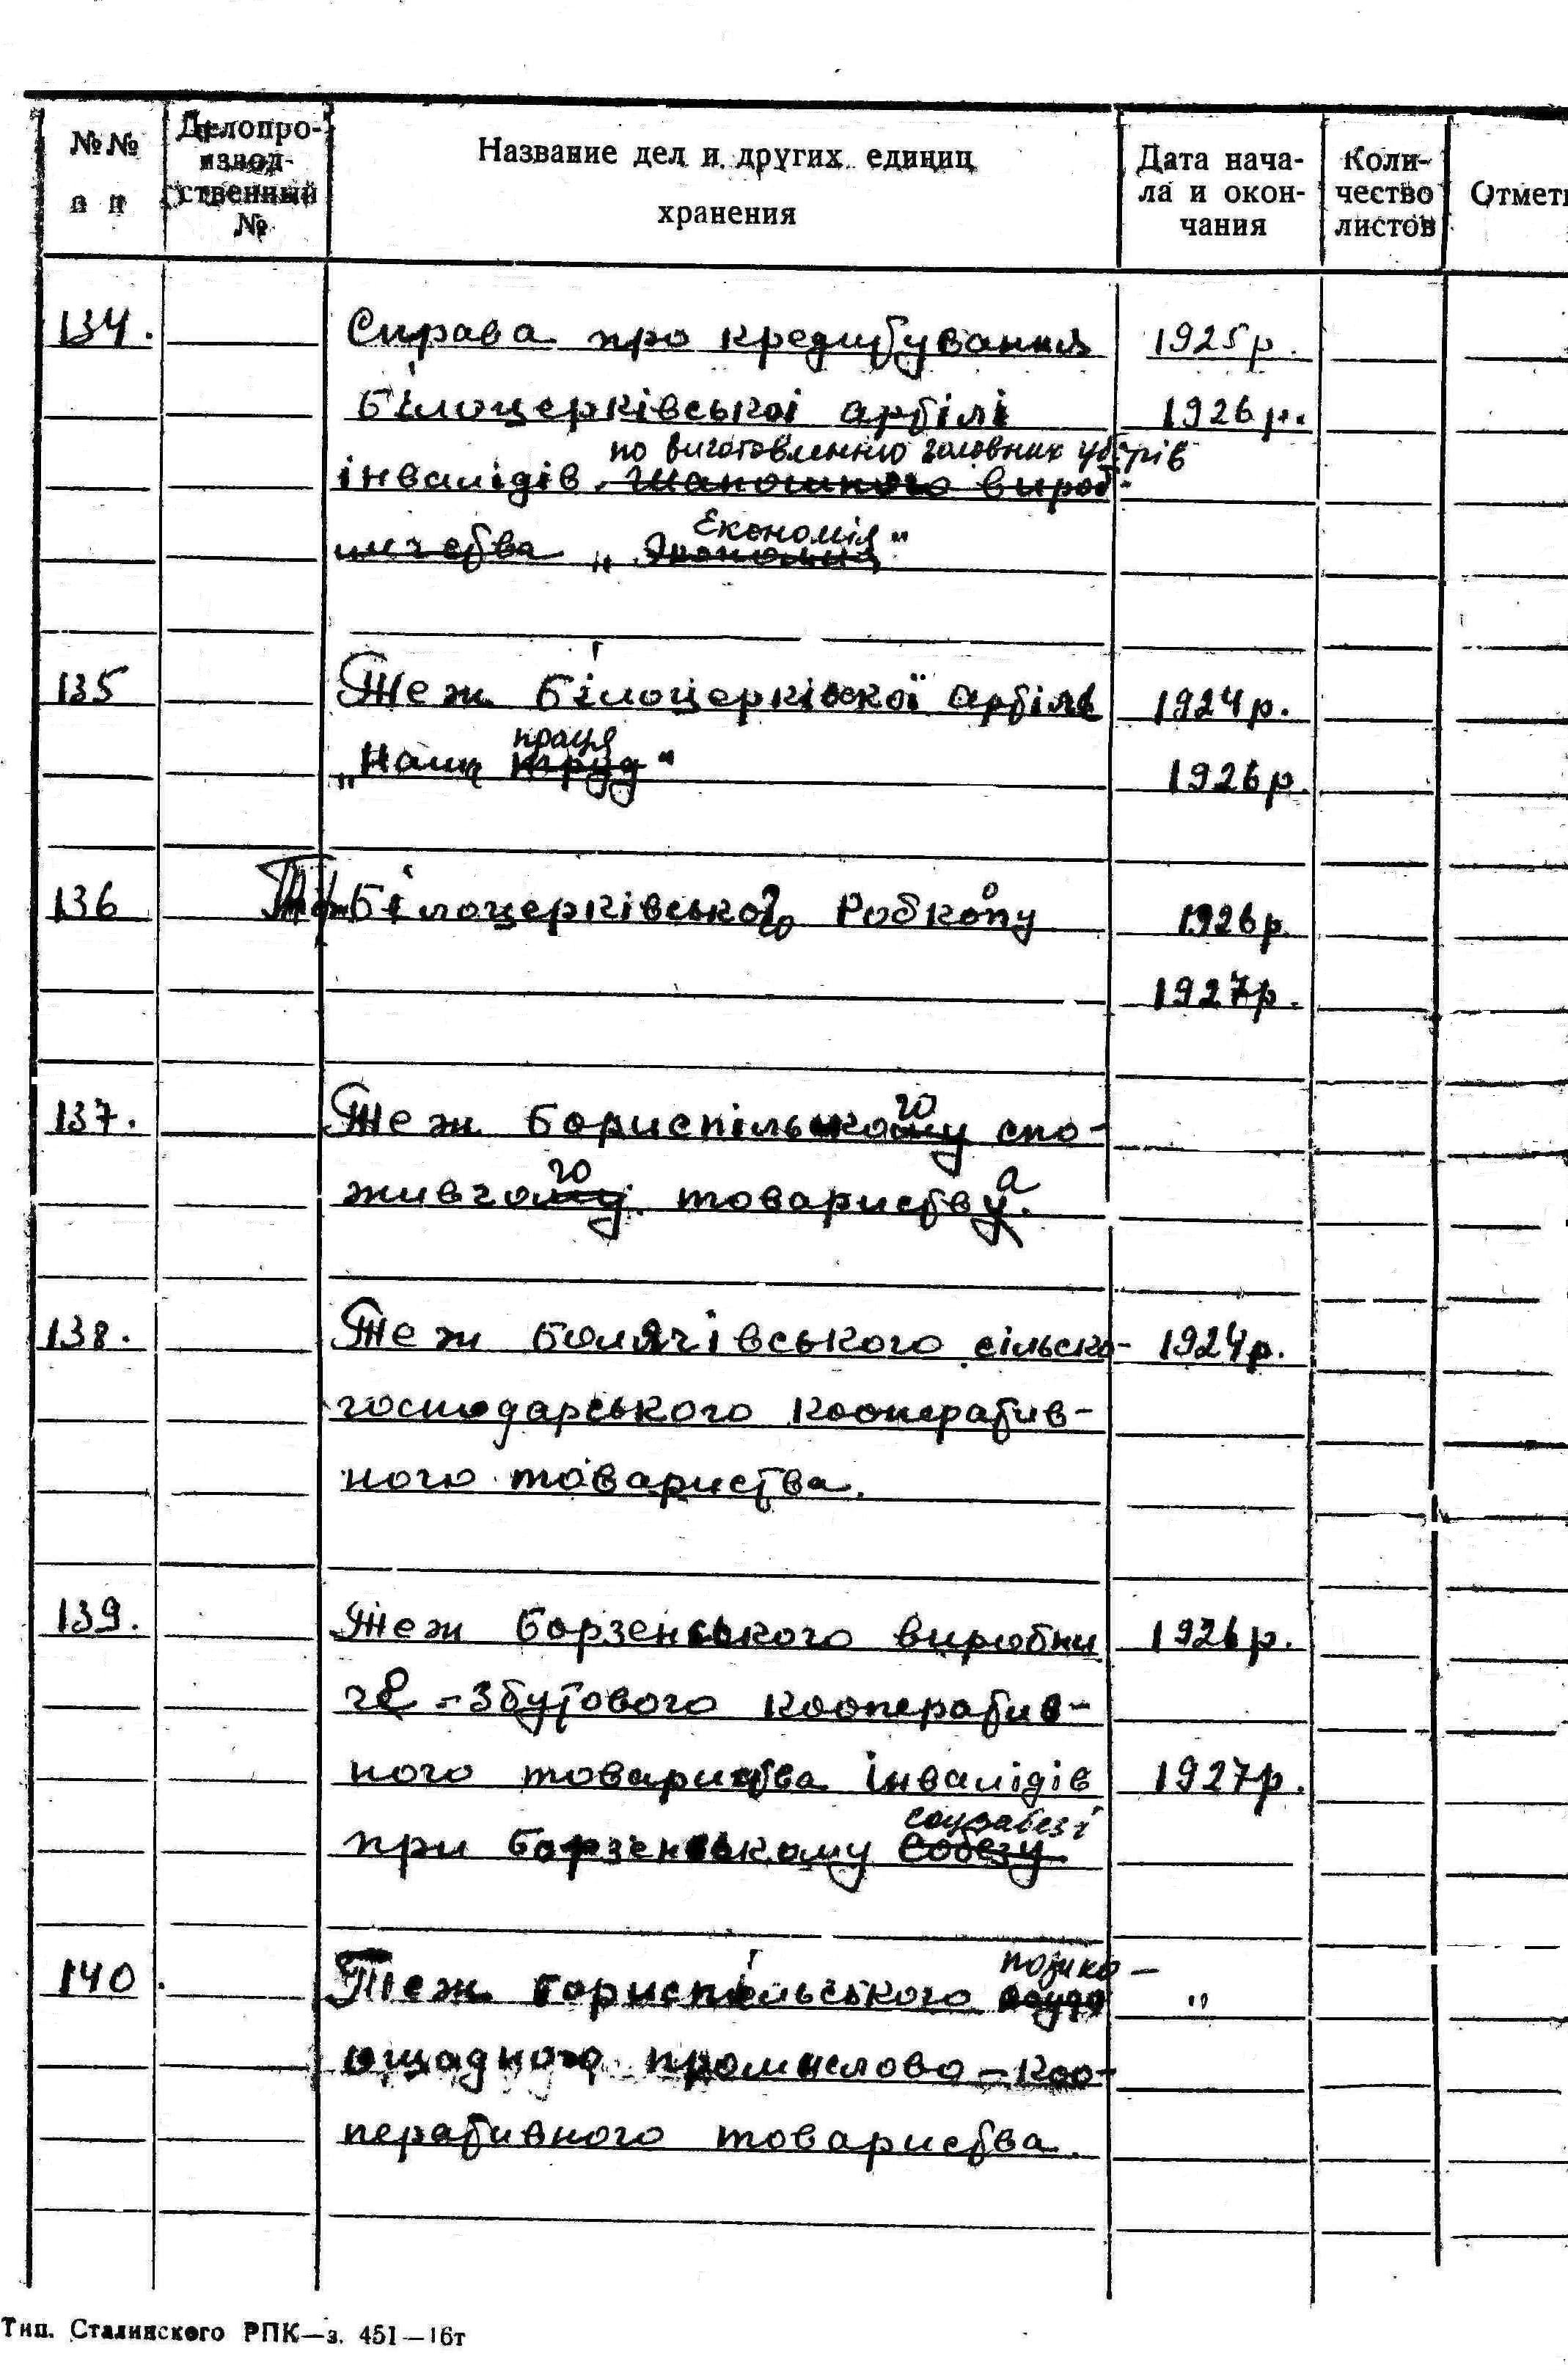 №№ п п
Делопро-
извод-
ственный
№
Название дел и других единиц
хранения
Дата нача-
ла и окон-
чания
Коли-
чество
листов
Отмет
134. Справа про кредитування 1925р.
Білоцерківської артілі 1926р.
по виготовленню головних уборів
інвалідів шапошного вироб-
ничества „Економія"
135 Теж Білоцерківскої артілі 1924р.
праця
„Наш труд" 1926р.
136 Теж Білоцерківського Робкопу 1926р.
1927р.
137. Теж Бориспільському спо-
го
живчому товариству.
го а
138. Теж Болячівського сільсько- 1924р.
господарського кооператив-
ного товариства.
139. Теж Борзенського виробни 1926р.
чо-збутового кооператив-
ного товариства інвалідів 1927р.
соцзабезі
при Борзенському Собезу
позико-
140. Теж Бориспільського "
ощадного промислово-коо-
перативного товариства.
Тип. Сталинского РПК—з. 451—16т